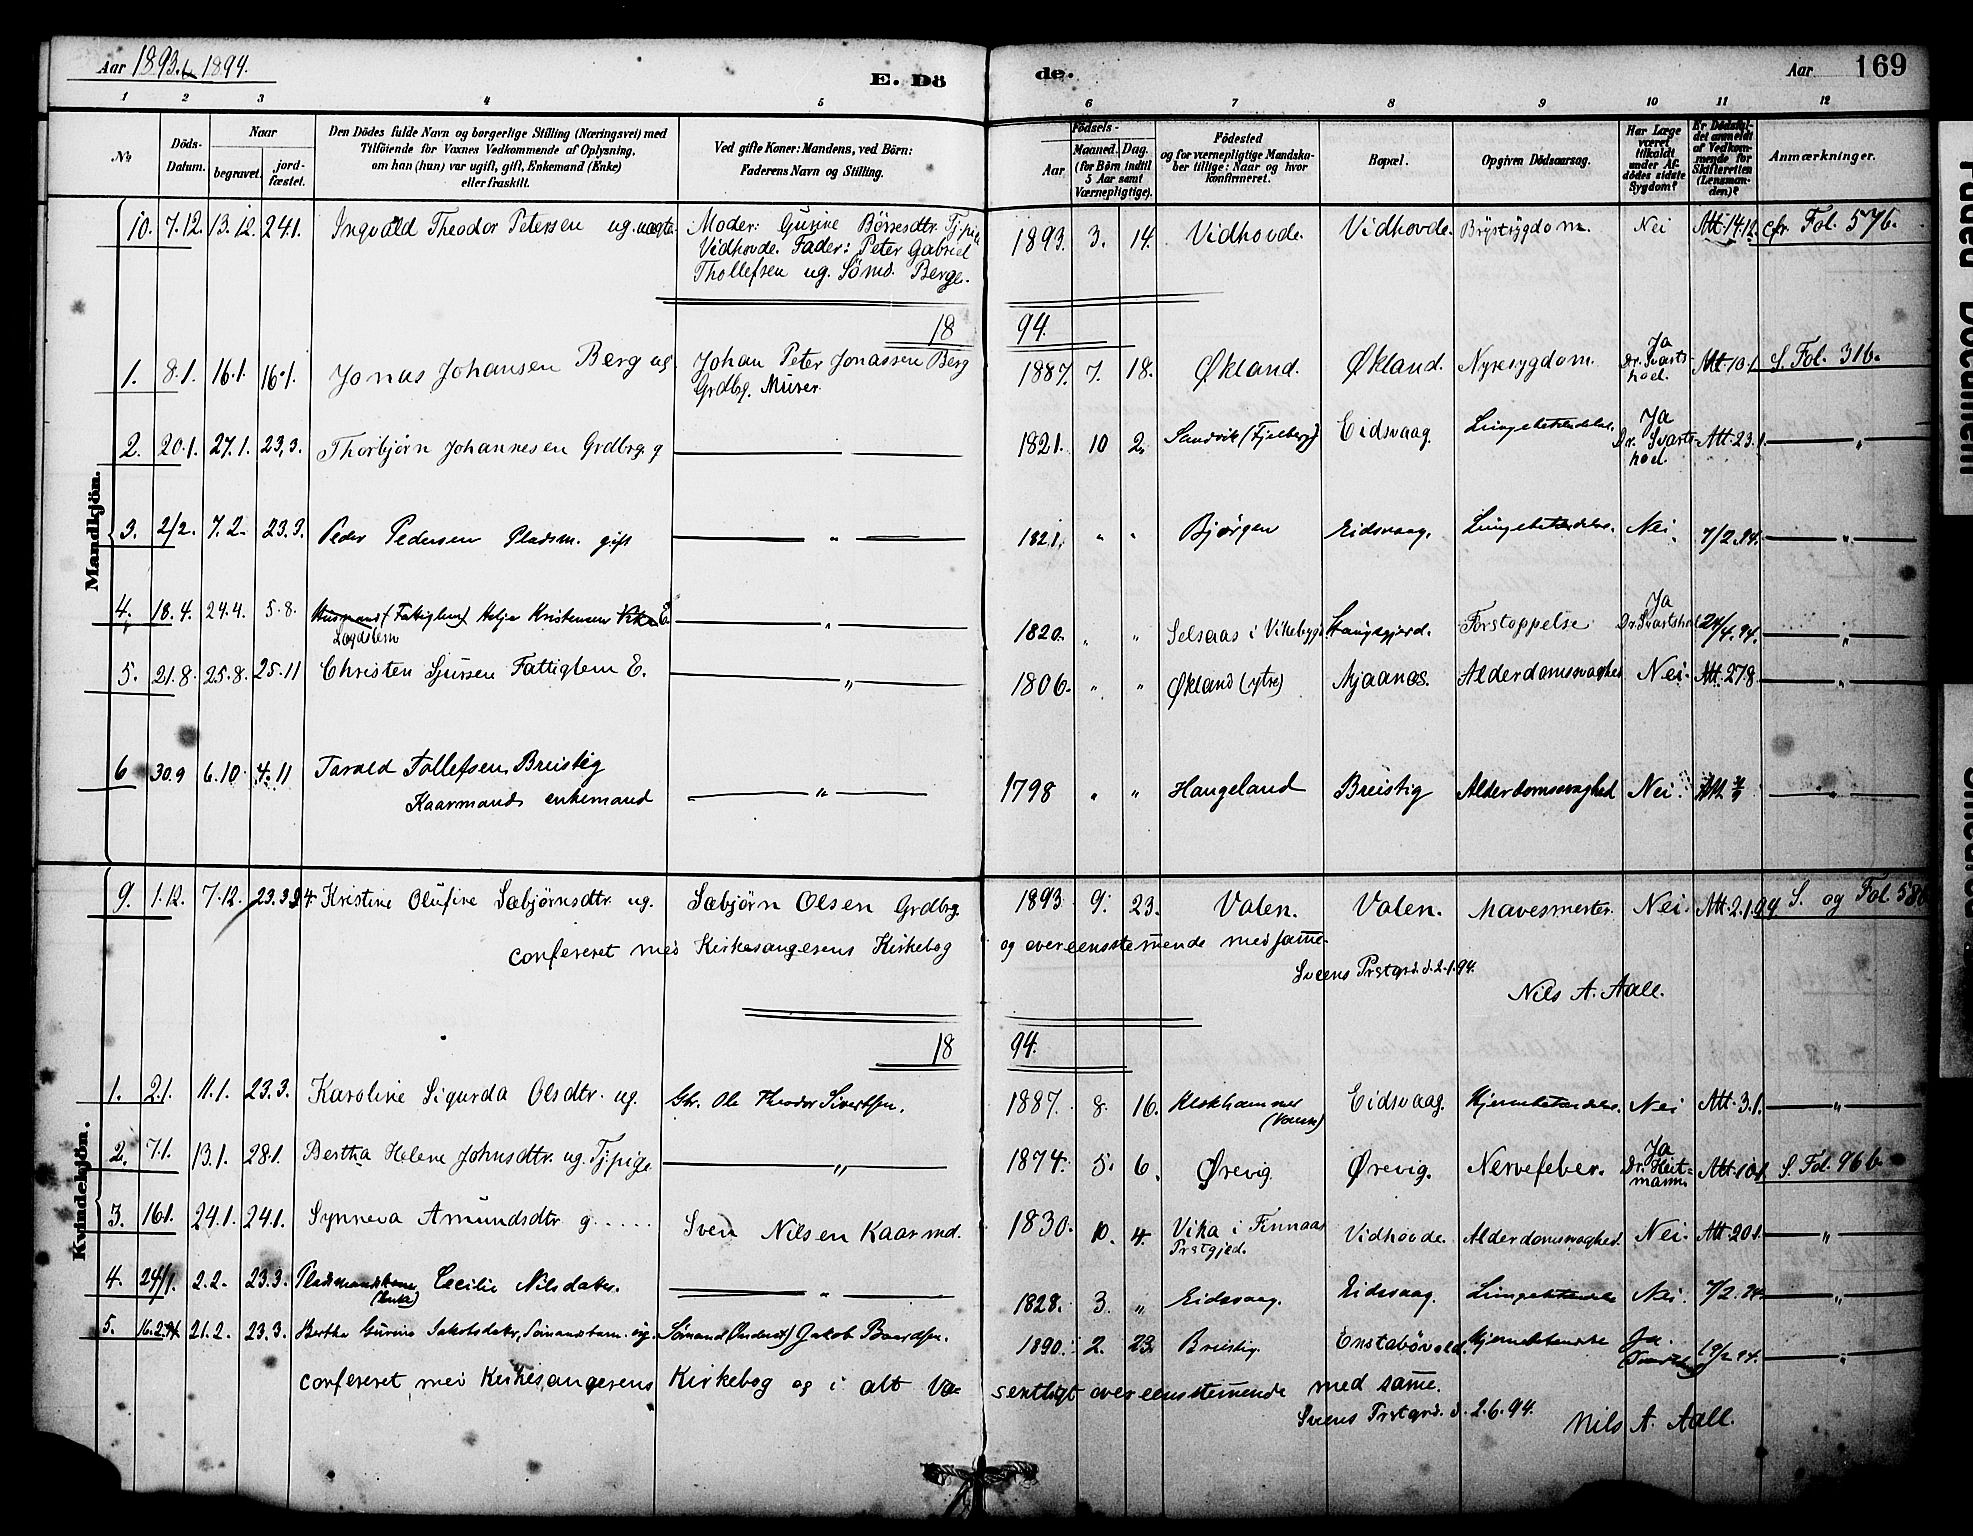 Aar 1893. & 1894.
E. Dö de.
Aar 169
1 2 3 4 5 6 7 8 9 10 11 12
No
Döds-Datum.
Naar
begravet.
jord-fæstet.
Den Dödes fulde Navn og borgerlige Stilling (Næringsvei) med
Tilföiende for Voxnes Vedkommende af Oplysning,
om han (hun) var ugift, gift, Enkemand (Enke)
eller fraskilt.
Ved gifte Koner: Mandens, ved Börn:
Faderens Navn og Stilling.
Födsels-
Aar
Maaned. Dag.
(for Börn indtil
5 Aar samt
Værnepligtige).
Födested
og for værnepligtige Mandska-
ber tillige: Naar og hvor
konfirmeret.
Bopæl.
Opgiven Dödsaarsag.
Har Læge
været
tilkaldt
under Af-
dödes sidste
Sygdom?
Er Dödsfal-
det anmeldt
af Vedkom-
mende for
Skifteretten
(Lensman-
den)?
Anmærkninger.
Mandkjön.
10. 7.12. 13.12. 24.1. Ingvald Theodor Petersen ug. uægte. Moder: Gurine Børresdtr. Tj.pige
Vidhovde. Fader: Peter Gabriel
Thollefsen ug. Sömd. Berge.
1893. 3. 14. Vidhovde. Vidhovde. Brystsygdom. Nei Att. 14.12. cfr. Fol. 57b.
18 94.
1. 8.1. 16.1. 16.1. Jonas Johansen Berg ug. Johan Peter Jonassen Berg
Grdbrg. Murer
1887. 7. 18. Økland. Økland. Nyresygdom. Ja
Dr. Svarts-
hoel. Att. 10.1. S. Fol. 31b.
2. 20.1. 27.1. 23.3. Thorbjørn Johannesen Grdbrg. g — —
1821. 10 2. Sandvik (Fjelberg) Eidsvaag. Lungebetændelse. Ja
Dr. Svarts-
hoel. Att. 23.1. — " —
3. 2/2. 7.2. 23.3. Peder Pedersen Pladsm. gift — " —
1821. " " Bjørgen Eidsvaag. Lungebetændelse. Nei. 7/2.94. — " —
4. 18.4. 24.4. 5.8. Husmand (Fattiglem) Helje Kristensen Vika E.
Lægdslem — " —
1820. " " Selsaas i Vikebygd Haugsgjerd. Forstoppelse Ja
Dr. Svartshoel 24/4.94. — " —
5. 21.8. 25.8. 25.11 Christen Sjursen Fattiglem E. — " —
1806. " " Økland (ytre) Mjaanæs. Alderdomssvaghed Nei. Att. 27.8. — " —
6 30.9 6.10. 4.11 Tarald Tollefsen Breistig
Kaarmand enkemand — " —
1798 " " Haugeland Breistig Alderdomssvaghed Nei. — " —
Kvindekjön.
9. 1.12. 7.12. 23.3.94. Kristine Olufine Sæbjørnsdtr. ug. Sæbjörn Olsen Grdbrg.
1893 9. 23. Valen. Valen. Mavesmerter. Nei. Att. 2.1.94 S. og Fol. 58b
confereret med Kirkesangerens Kirkebog og overeensstemmende med samme.
Sveens Prstgrd. d. 2.1.94.
Nils A. Aall.
18 94.
1. 2.1. 11.1. 23.3. Karoline Sigurda Olsdtr. ug. Gbr. Ole Theodor Sivertsen.
1887. 8. 16. Eidsvaag. Hjernebetændelse. Nei Att. 3.1. — " —
2. 7.1. 13.1. 28.1. Bertha Helene Johnsdtr. ug. Tj.pige. — " —
1874. 5. 6. Ørevig. Ørevig. Nervefeber. Ja
Dr. Heit-
mann Att. 10.1. S. Fol. 96b.
3. 16.1. 24.1. 24.1. Synneva Amundsdtr. g...... Sven Nilsen Kaarmd.
1830. 10. 4. Vika i Finnaas
Prstgjed. Vidhovde. Alderdomssvaghed. Nei. Att. 20.1. — " —
4. 24/1. 2.2. 23.3. Pladsmandskone
(Enke) Cecilie Nilsdater. — " —
1828. 3. " Eidsvaag. Eidsvaag. Lungebetændelse Nei. 7/2.94. — " —
5. 16.2.94 21.2. 23.3. Bertha Gurine Jakobsdater, Sømandsbarn. ug. Sømand (Inderst) Jakob Baardsen.
1890. 2. 23. Breistig. Enstabövold. Hjernebetændelse Ja. 19/2 94. — " —
confereret med Kirkesangerens Kirkebog og i alt væ- sentligt overeensstemmende med samme.
Sveens Prstgrd. d. 2.6.94. Nils A. Aall.